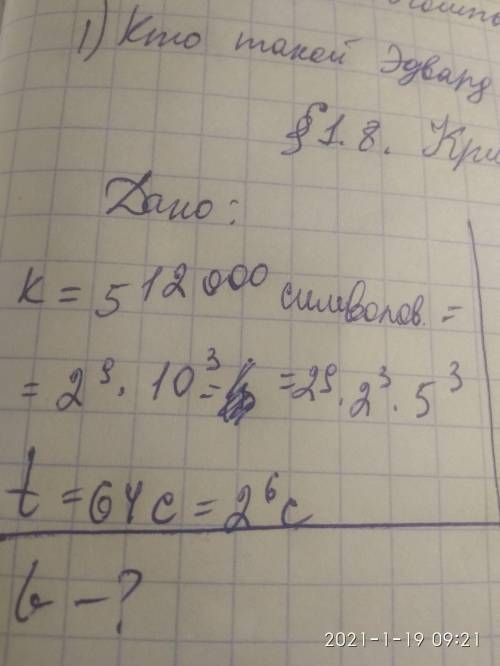 1) Кто такой Эдвард
§ 1.8.
Дано:
K = 512 000 символов. =
= 2⁹ · 10³ = = 2⁹ · 2³ · 5³
t = 64 с = 2⁶ с
v - ?
2021-1-19 09:21